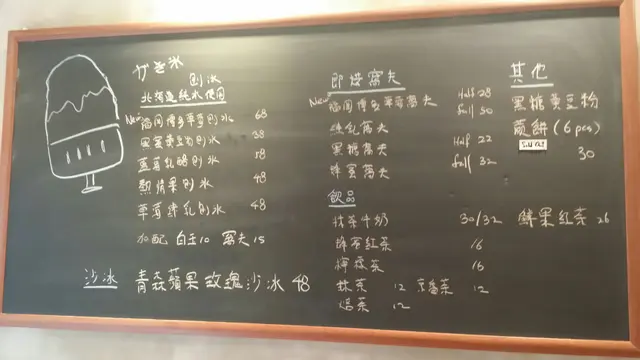 かき氷
刨冰
北海道純水使用
New 福岡博多草莓刨冰 68
黑糖黃豆粉刨冰 38
藍莓乳酪刨冰 58
熱情果刨冰 48
草莓煉乳刨冰 48
加配 白玉10 窩夫15
沙冰 青森蘋果玫瑰沙冰 48
即燒窩夫
New 福岡博多草莓窩夫 Half 28
Full 50
煉乳窩夫
黑糖窩夫 Half 22
蜂蜜窩夫 Full 32
飲品
抹茶牛奶 30/32
蜂蜜紅茶 16
檸檬茶 16
抹茶 12 玄米茶 12
焙茶 12
其他
黑糖黃豆粉
煎餅 (6 pcs)
Sold Out
30
鮮果紅茶 26